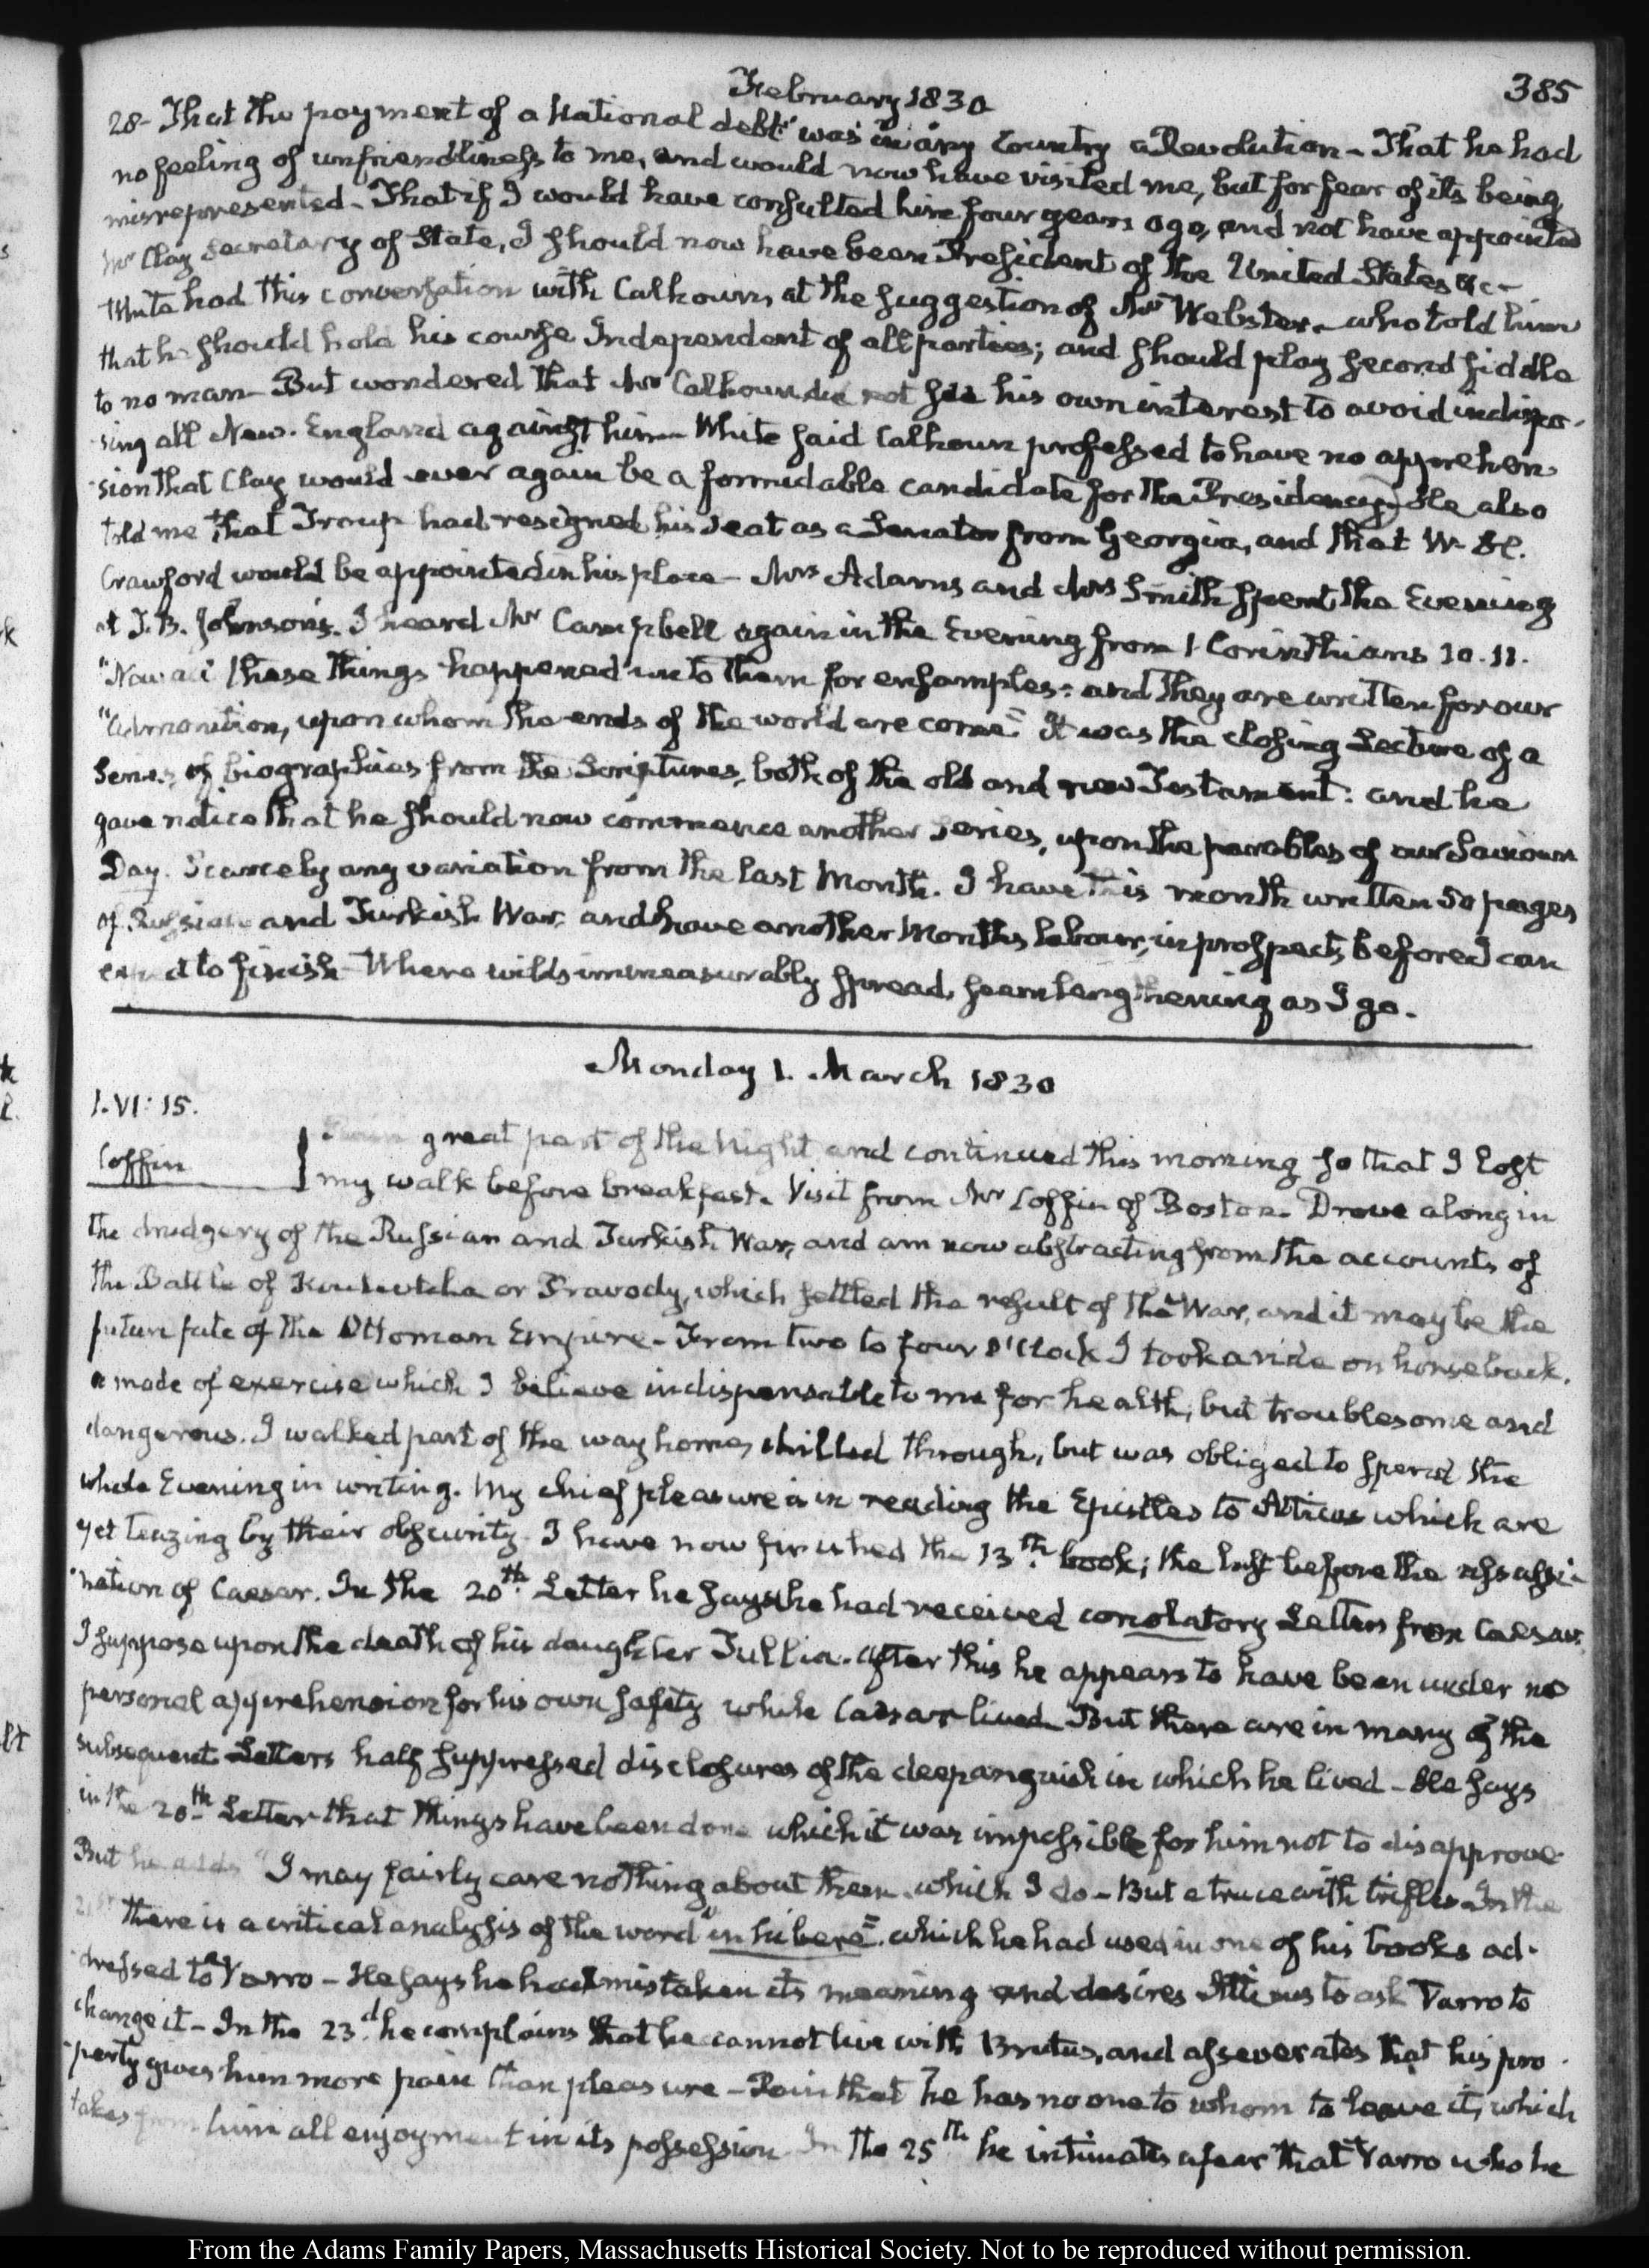 February 1830
385
28- That the payment of a National debt was in any Country a Revolution - That he had
no feeling of unfriendliness to me, and would now have visited me, but for fear of its being
misrepresented - That if I would have consulted him four years ago, and not have appointed
Mr Clay Secretary of State, I should now have been President of the United States &c -
White had this conversation with Calhoun, at the suggestion of Mr Webster - who told him
that he should hold his course Independent of all parties; and should play second fiddle
to no man - But wondered that Mr Calhoun did not see his own interest to avoid indispo-
-sing all New-England against him - White said Calhoun professed to have no apprehen-
-sion that Clay would ever again be a formidable candidate for the Presidency) He also
told me that Troup had resigned his Seat as a Senator from Georgia, and that W. H.
Crawford would be appointed in his place - Mrs Adams and Mrs Smith spent the Evening
at J. B. Johnson's. I heard Mr Campbell again in the Evening from 1 Corinthians 10. 11.
"Now all these things happened unto them for ensamples: and they are written for our
"admonition, upon whom the ends of the world are come" It was the closing Lecture of a
Series of biographies from the Scriptures, both of the old and new Testament: and he
gave notice that he should now commence another Series, upon the parables of our Saviour
Day. Scarcely any variation from the last Month. I have this month written 50 pages
of Russian and Turkish War, and have another Month's labour, in prospect, before I can
to finish - Where wilds immeasurably spread, seem lengthening as I go.
Monday 1. March 1830
1. VI: 15.
great part of the Night and continued this morning so that I lost
Coffin
my walk before breakfast. Visit from Mr Coffin of Boston - Drove along in
the drudgery of the Russian and Turkish War, and am now abstracting from the accounts of
the Battle of Koulevtcha or Pravody, which settled the result of the War, and it may be the
future fate of the Ottoman Empire - From two to four O'Clock I took a ride on horseback,
a mode of exercise which I believe indispensable to me for health, but troublesome and
dangerous. I walked part of the way home, chilled through, but was obliged to spend the
whole Evening in writing. My chief pleasure is in reading the Epistles to Atticus which are
yet teazing by their obscurity. I have now finished the 13th. book; the last before the assassi-
-nation of Caesar. In the 20th. Letter he says he had received consolatory Letters from Caesar,
I suppose upon the death of his daughter Tullia. After this he appears to have been under no
personal apprehension for his own safety while Caesar lived - But there are in many of the
subsequent Letters half suppressed disclosures of the deep anguish in which he lived - He says
in the 20th. Letter that things have been done which it was impossible for him not to disapprove
But he adds "I may fairly care nothing about them - which I do - But a truce with trifles - In the
21st there is a critical analysis of the word "inhibere". which he had used in one of his books ad-
-dressed to Varro - He says he had mistaken its meaning and desires Atticus to ask Varro to
change it - In the 23.d he complains that he cannot live with Brutus, and asseverates that his pro-
-perty gives him more pain than pleasure - Pain that he has no one to whom to leave it, which
takes from him all enjoyment in its possession - In the 25th he intimates a fear that Varro who he
From the Adams Family Papers, Massachusetts Historical Society. Not to be reproduced without permission.